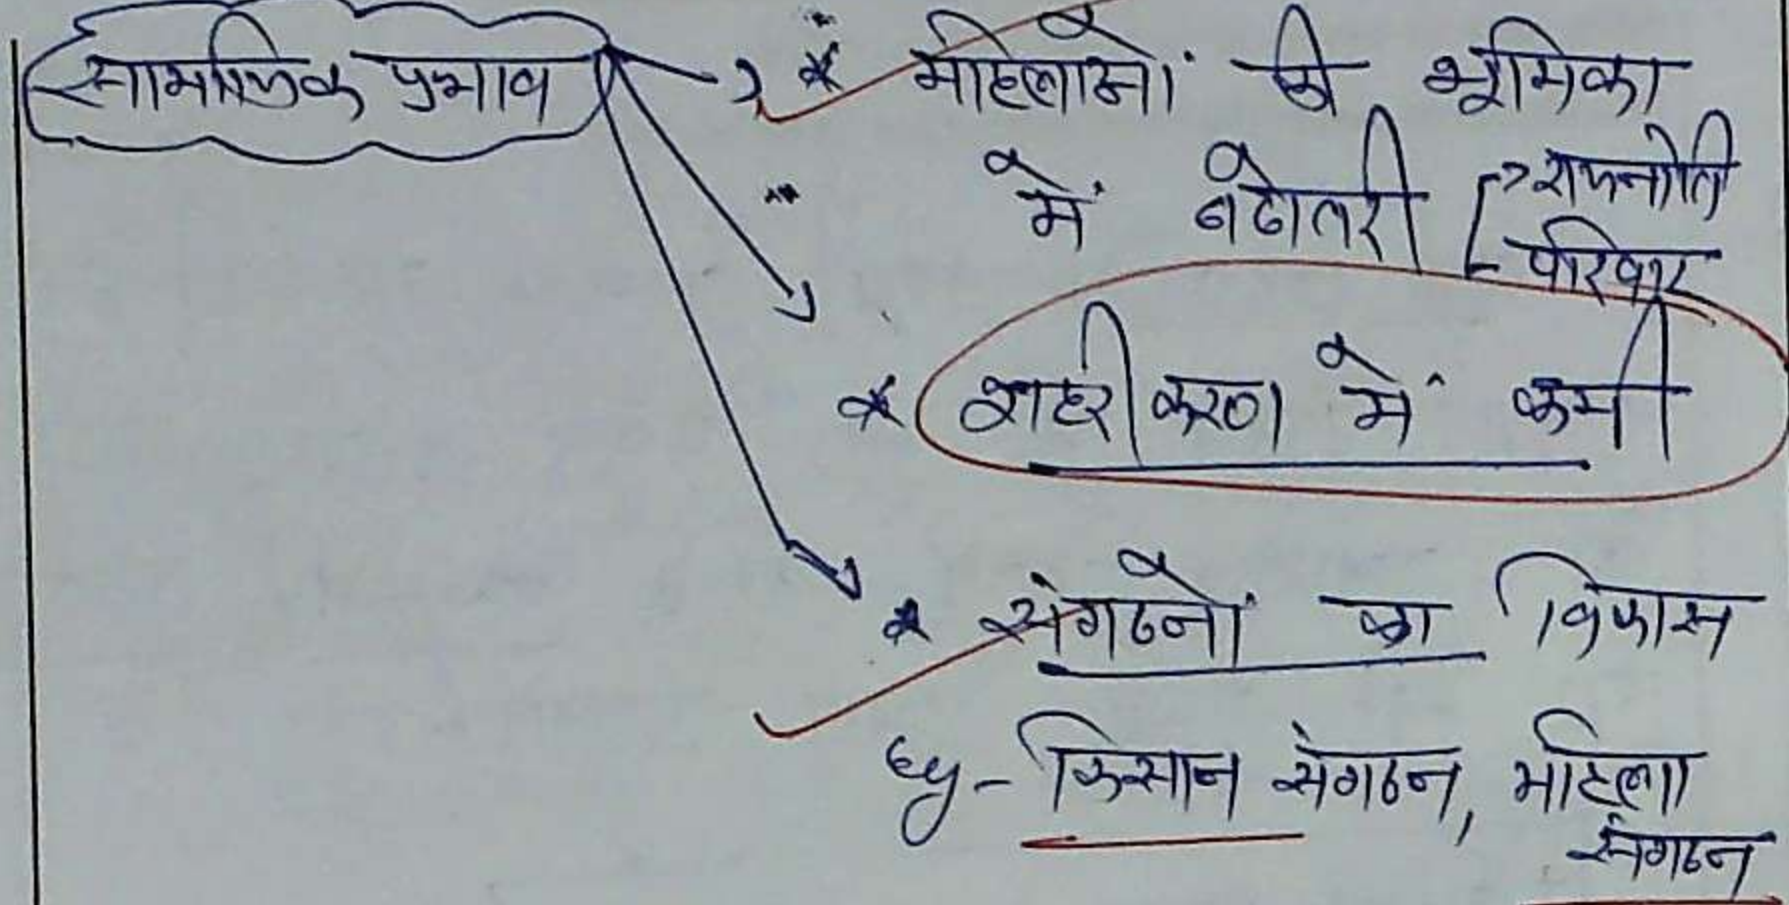 सामाजिक प्रभाव
* महिलाओं की भूमिका
में बढोतरी [> राजनीति
परिवार
* शहरीकरण में कमी
* संगठनों का विकास
eg - किसान संगठन, महिला
संगठन